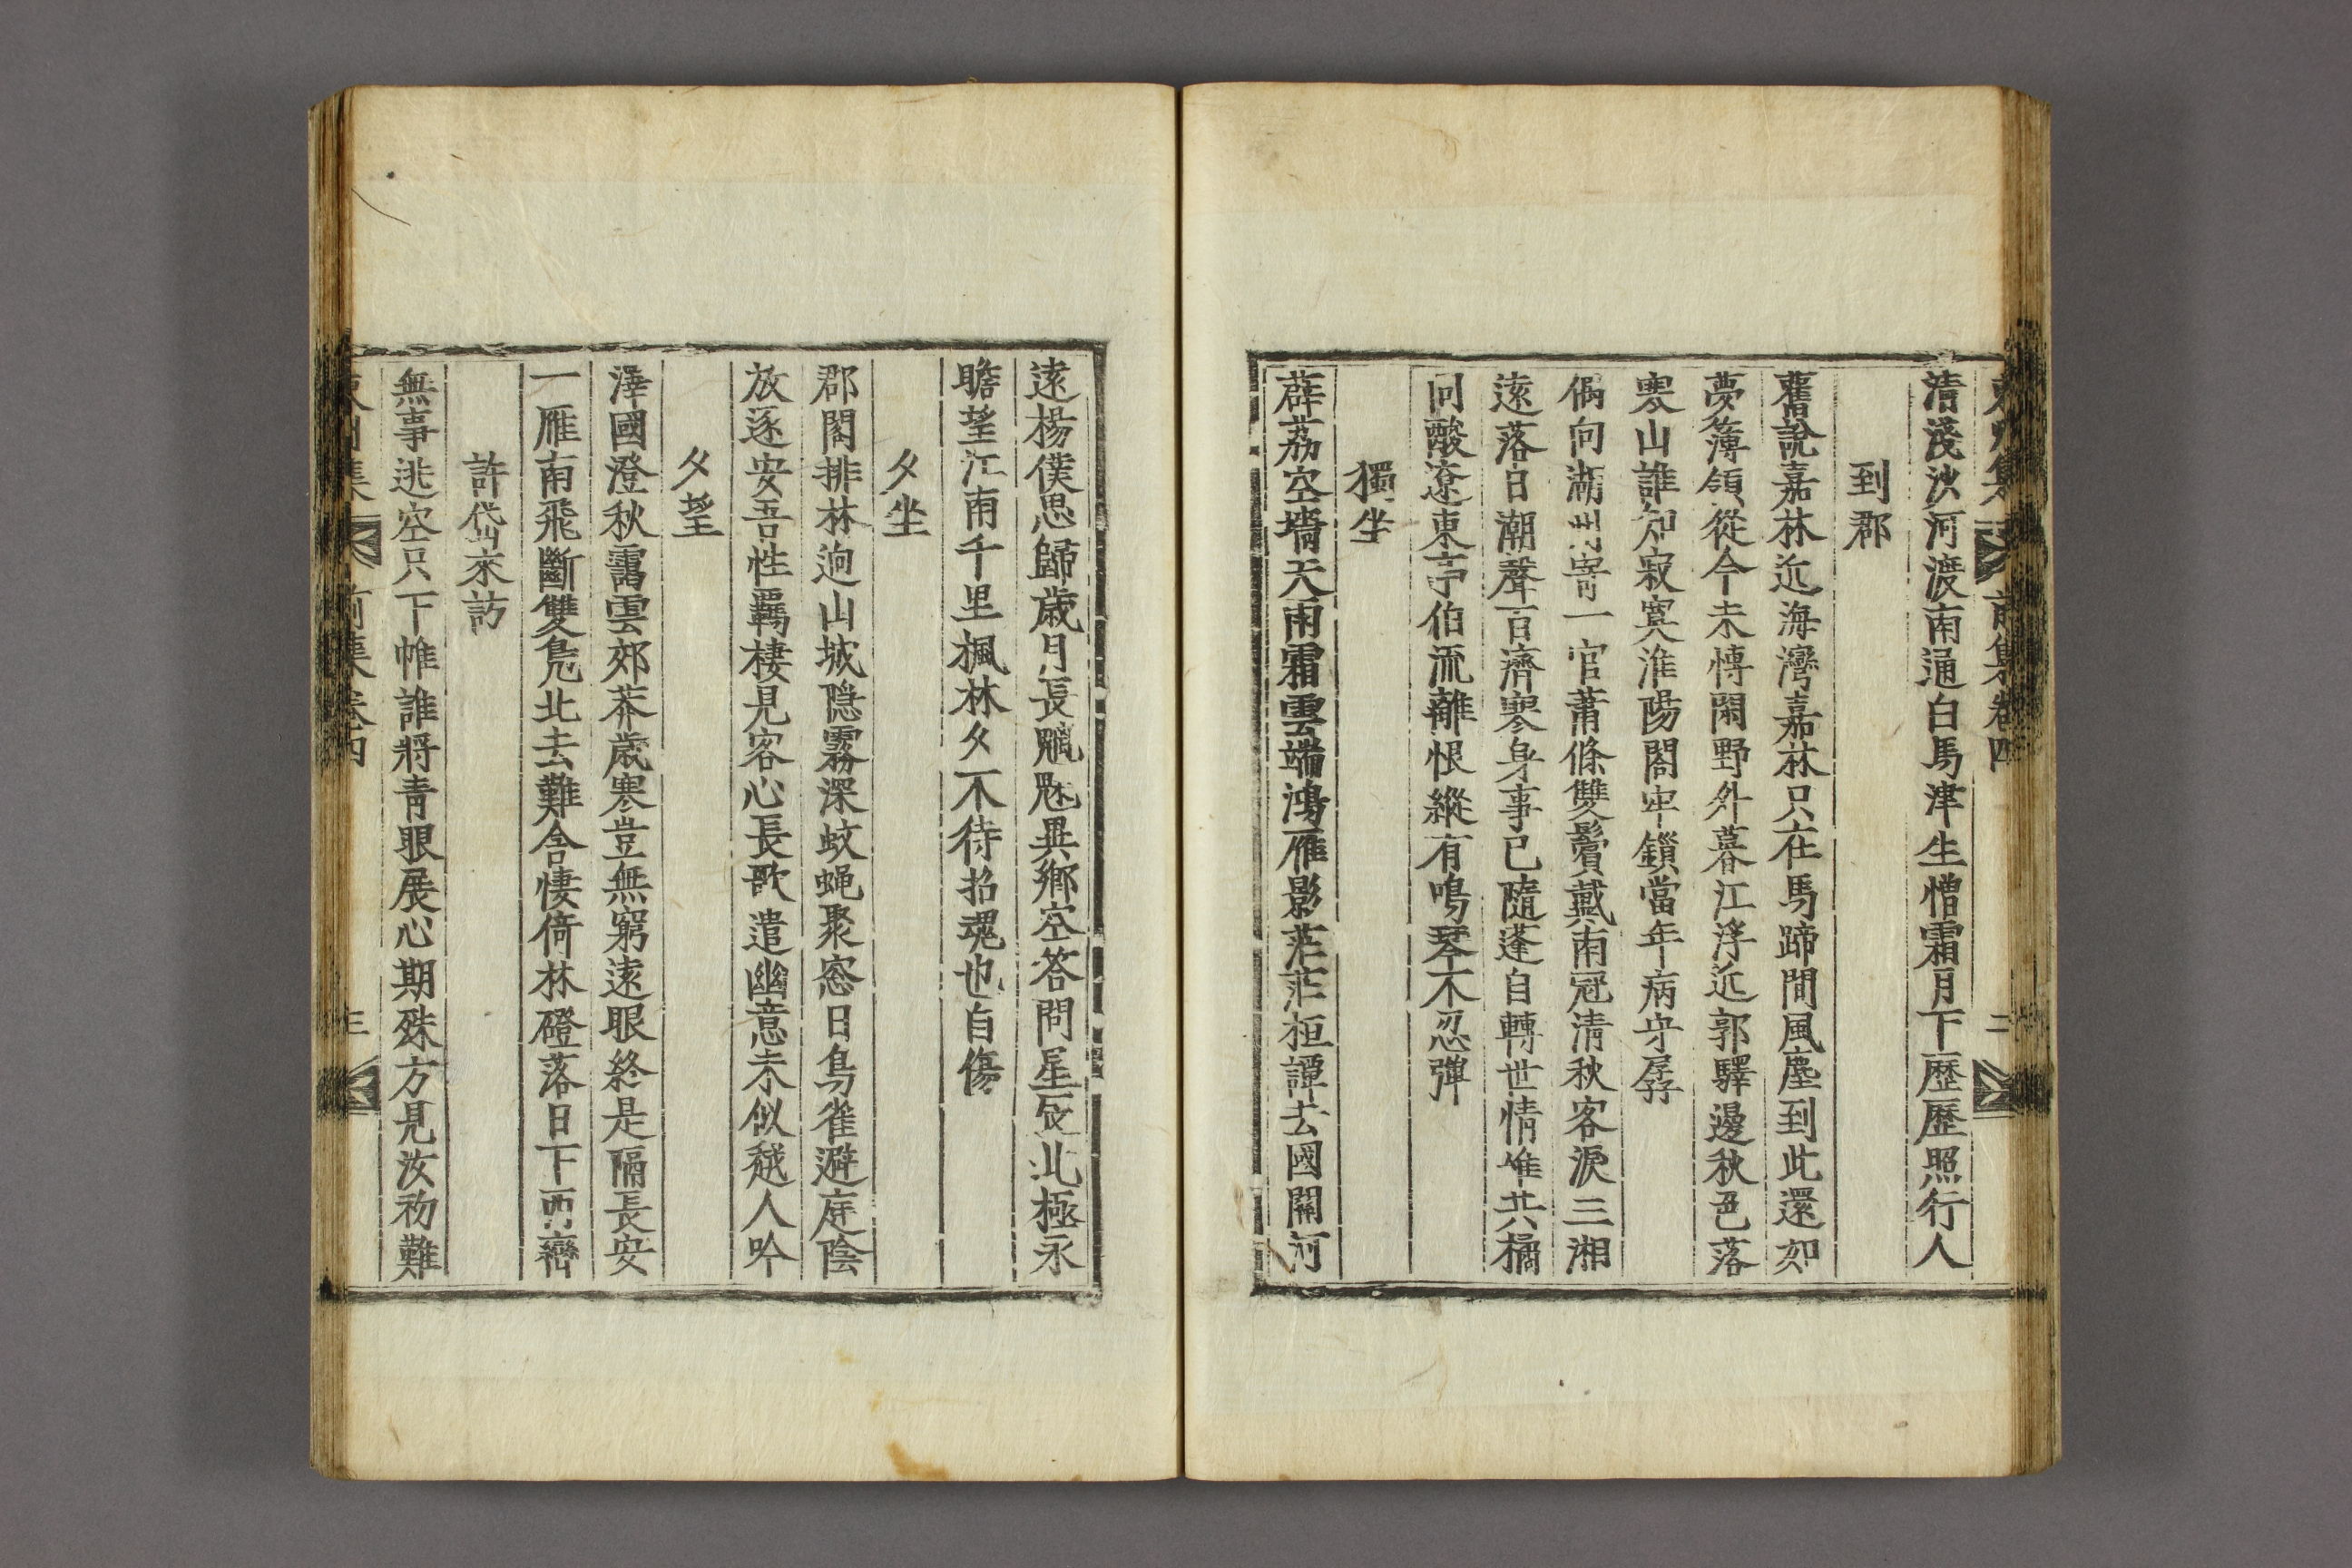 東州集 前集卷四 二
清淺沙河渡南通白馬津生憎霜月下歷歷照行人
到郡
舊說嘉林近海灣嘉林只在馬蹄間風塵到此還如
夢簿領從今未愽閑野外暮江浮近郭驛邊秋色落
寒山誰知寂寞淮陽閤牢鎖當年病守孱
偶向湖州寄一官蕭條雙鬢戴南冠清秋客淚三湘
遠落日潮聲百濟寒身事已隨蓬自轉世情惟共橘
同酸遼東亭伯流離恨縱有鳴琴不忍彈
獨坐
薜荔空墻天雨霜雲端鴻雁影茫茫桓譚去國關河
遠楊僕思歸歲月長魑魅異鄉空答問星辰北極永
瞻望江南千里楓林夕不待招魂也自傷
夕坐
郡閣排林逈山城隱霧深蚊蠅聚窓日鳥雀避庭陰
放逐安吾性羈棲見客心長歌遣幽意未似越人吟
夕望
澤國澄秋靄雲郊莽歲寒豈無窮遠眼終是隔長安
一雁南飛斷雙鳧北去難含悽倚林磴落日下西巒
許岱來訪
無事逃空只下帷誰將靑眼展心期殊方見汝初難
東州集 前集卷四 三